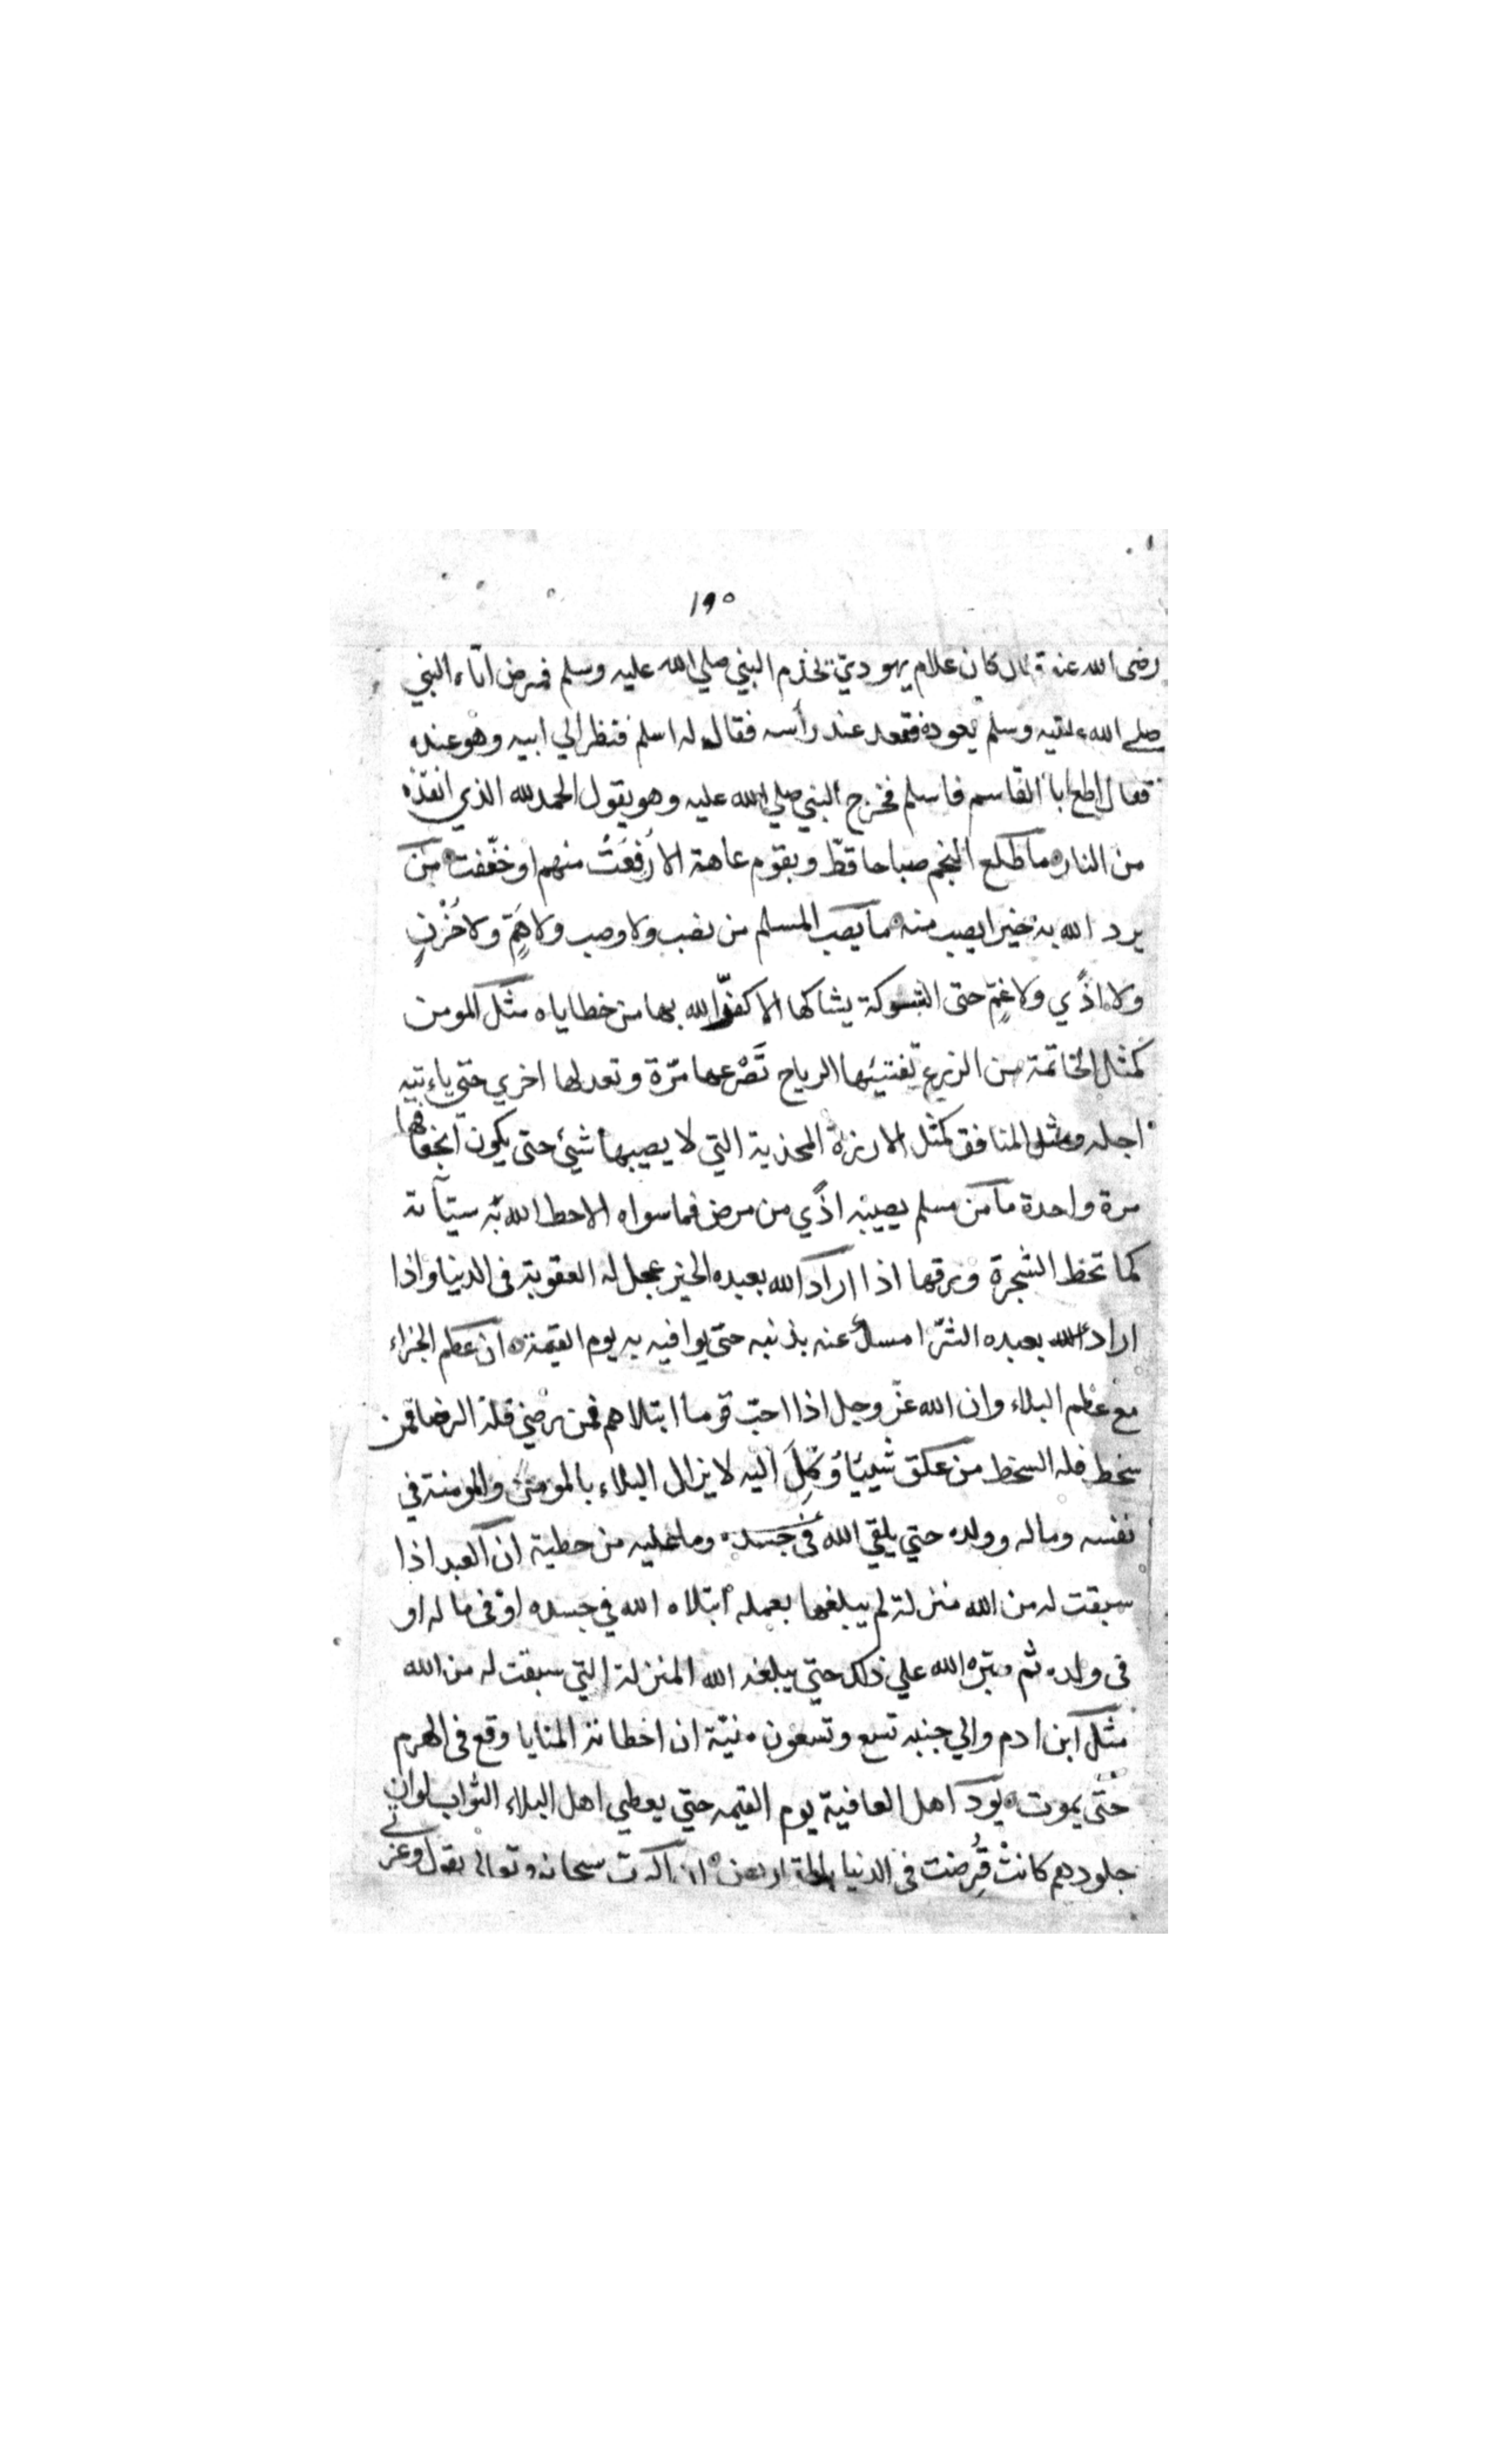 ١٩٥
رضى الله عنه قال كان غلام يهوديّ يخدم النبي صلي الله عليه وسلم فمرض اتاه النبي
صلے الله عليه وسلم يعوده فقعد عند رأسه فقال له اسلم فنظر الي ابيه وهو عنده
فقال اطع ابا القاسم فاسلم فخرج النبي صلي الله عليه وهو يقول الحمد لله الذي انقذه
من النار ما طلع النجم صباحا قطّ وبقوم عاهة الا رُفِعَتْ منهم او خفّفت من
يرد الله به خيرا يصب منه ما يصب المسلم من نصب ولا وصب ولا هَمٍّ ولا حُزْنٍ
ولا اذًي ولا غمٍّ حتى الشوكة يشاكها الا كفّر الله بها من خطاياه مثل المومن
كمثل الخاتمة من الزرع تفتيئها الرياح تَصْرعها مرّة وتعدلها اخري حتي ياءتيه
اجله ومثل المنافق كمثل الارزة المحذية التي لا يصيبها شيئ حتى يكون انجعافها
مرة واحدة ما من مسلم يصيبه اذًي من مرض فما سواه الا حط الله به سيّآته
كما تحط الشجرة ورقها اذا اراد الله بعبده الخير عجل له العقوبة فى الدنيا واذا
اراد الله بعبده الشرّ امسك عنه بذنبه حتى يوافيه به يوم القيمة ان عظم الجزاء
مع عظم البلاء وان الله عزّ وجل اذا احبّ قوما ابتلاهم فمن رضي فله الرضا فمن
سخط فله السخط من علق شيئا وُكِلَ اليه لا يزال البلاء بالمومن والمومنة في
نفسه وماله وولده حتي يلقي الله فى جسده وما عليه من خطية ان العبد اذا
سبقت له من الله منزلة لم يبلغها بعمله ابتلاه الله في جسده او فى ماله او
فى ولده ثم صبّره الله علي ذلك حتي يبلغه الله المنزلة التي سبقت له من الله
مثل ابن ادم والي جنبه تسع وتسعون منيّة ان اخطاته المنايا وقع فى الهرم
حتّى يموت يود اهل العافية يوم القيمه حتي يعطي اهل البلاء الثواب لو ان
جلودهم كانتْ قُرِضت فى الدنيا سبحانه وتعالى يقول وعزتي